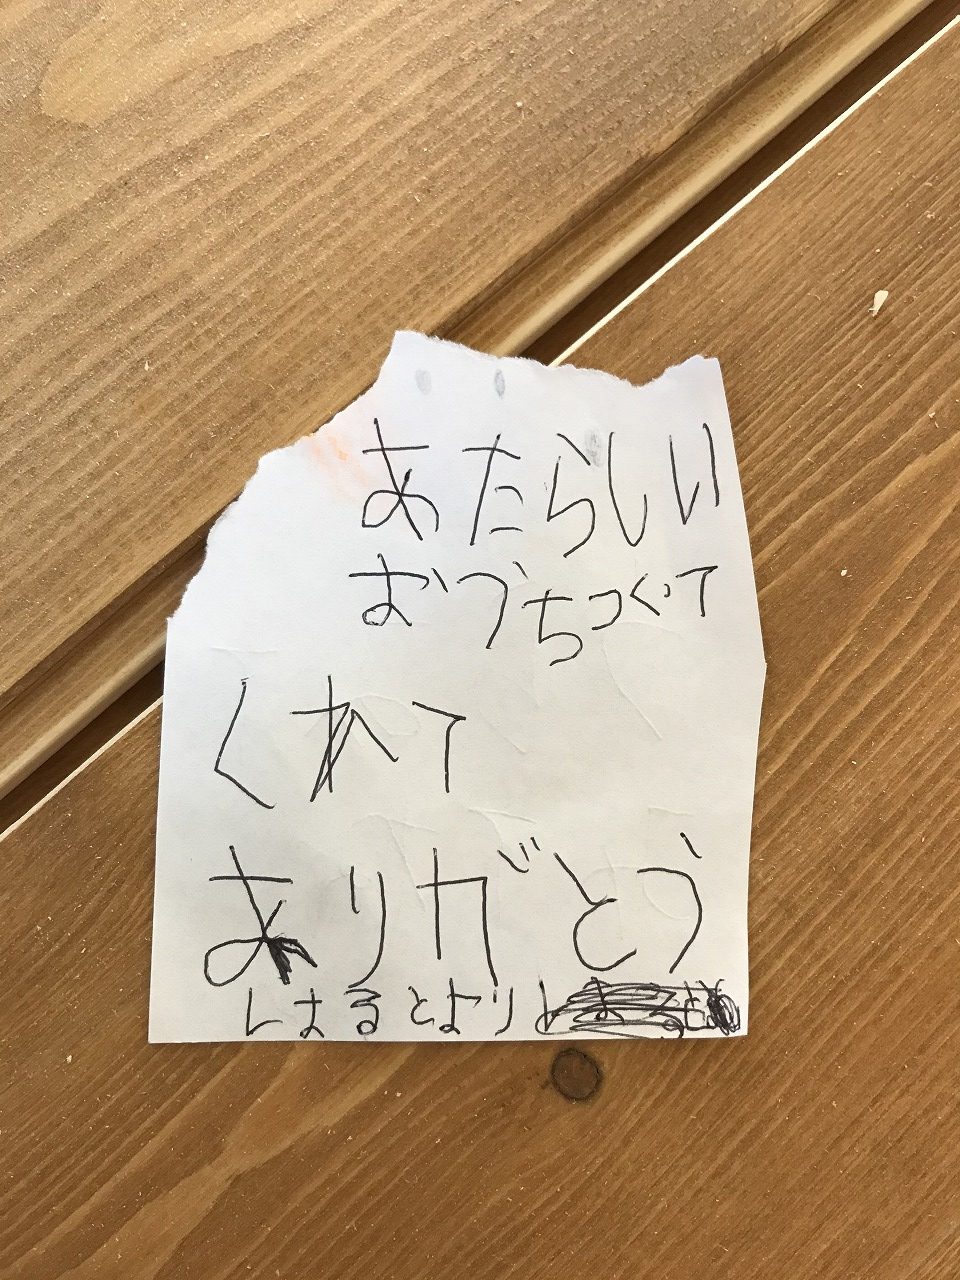 あたらしい
おうちつくって
くれて
ありがとう
はるとより